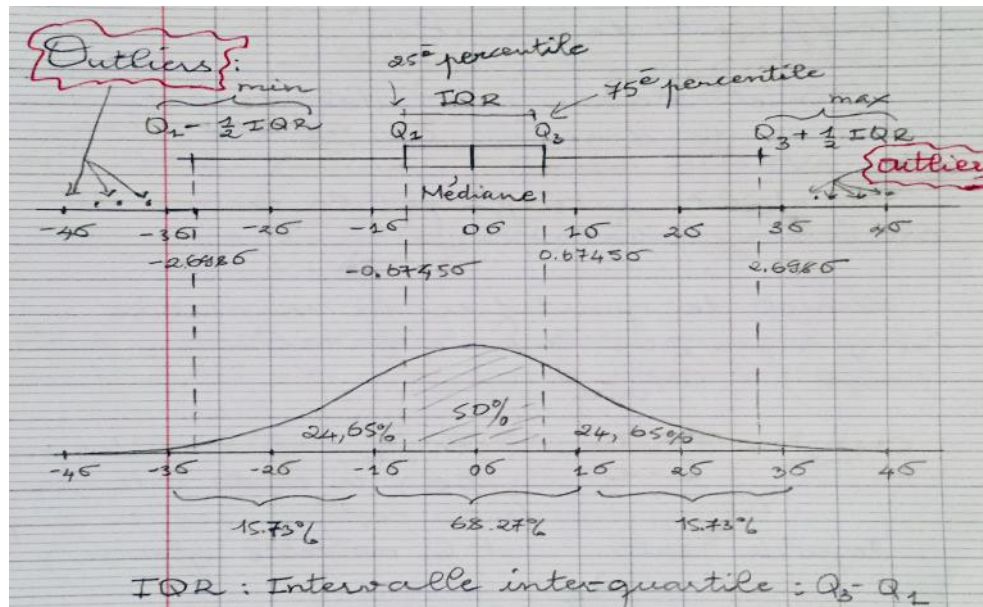 Outliers :
25è percentile
min
IQR
75è percentile
max
Q1 - 1/2 IQR
Q1
Q3
Q3 + 1/2 IQR
outlier
Médiane
-4σ -3σ -2σ -1σ 0σ 1σ 2σ 3σ 4σ
-2.698σ -0.6745σ 0.6745σ 2.698σ
50%
24,65% 24,65%
-4σ -3σ -2σ -1σ 0σ 1σ 2σ 3σ 4σ
15.73% 68.27% 15.73%
IQR : Intervalle inter-quartile : Q3 - Q1